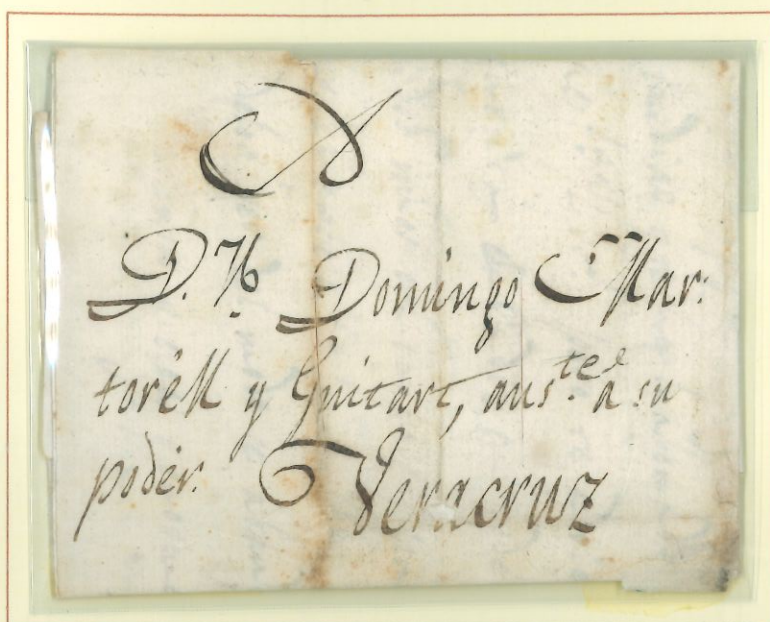 A
D.ⁿ Domingo Mar:
torell y Guitart, aus.ᵗᵉ á su
poder. Veracruz